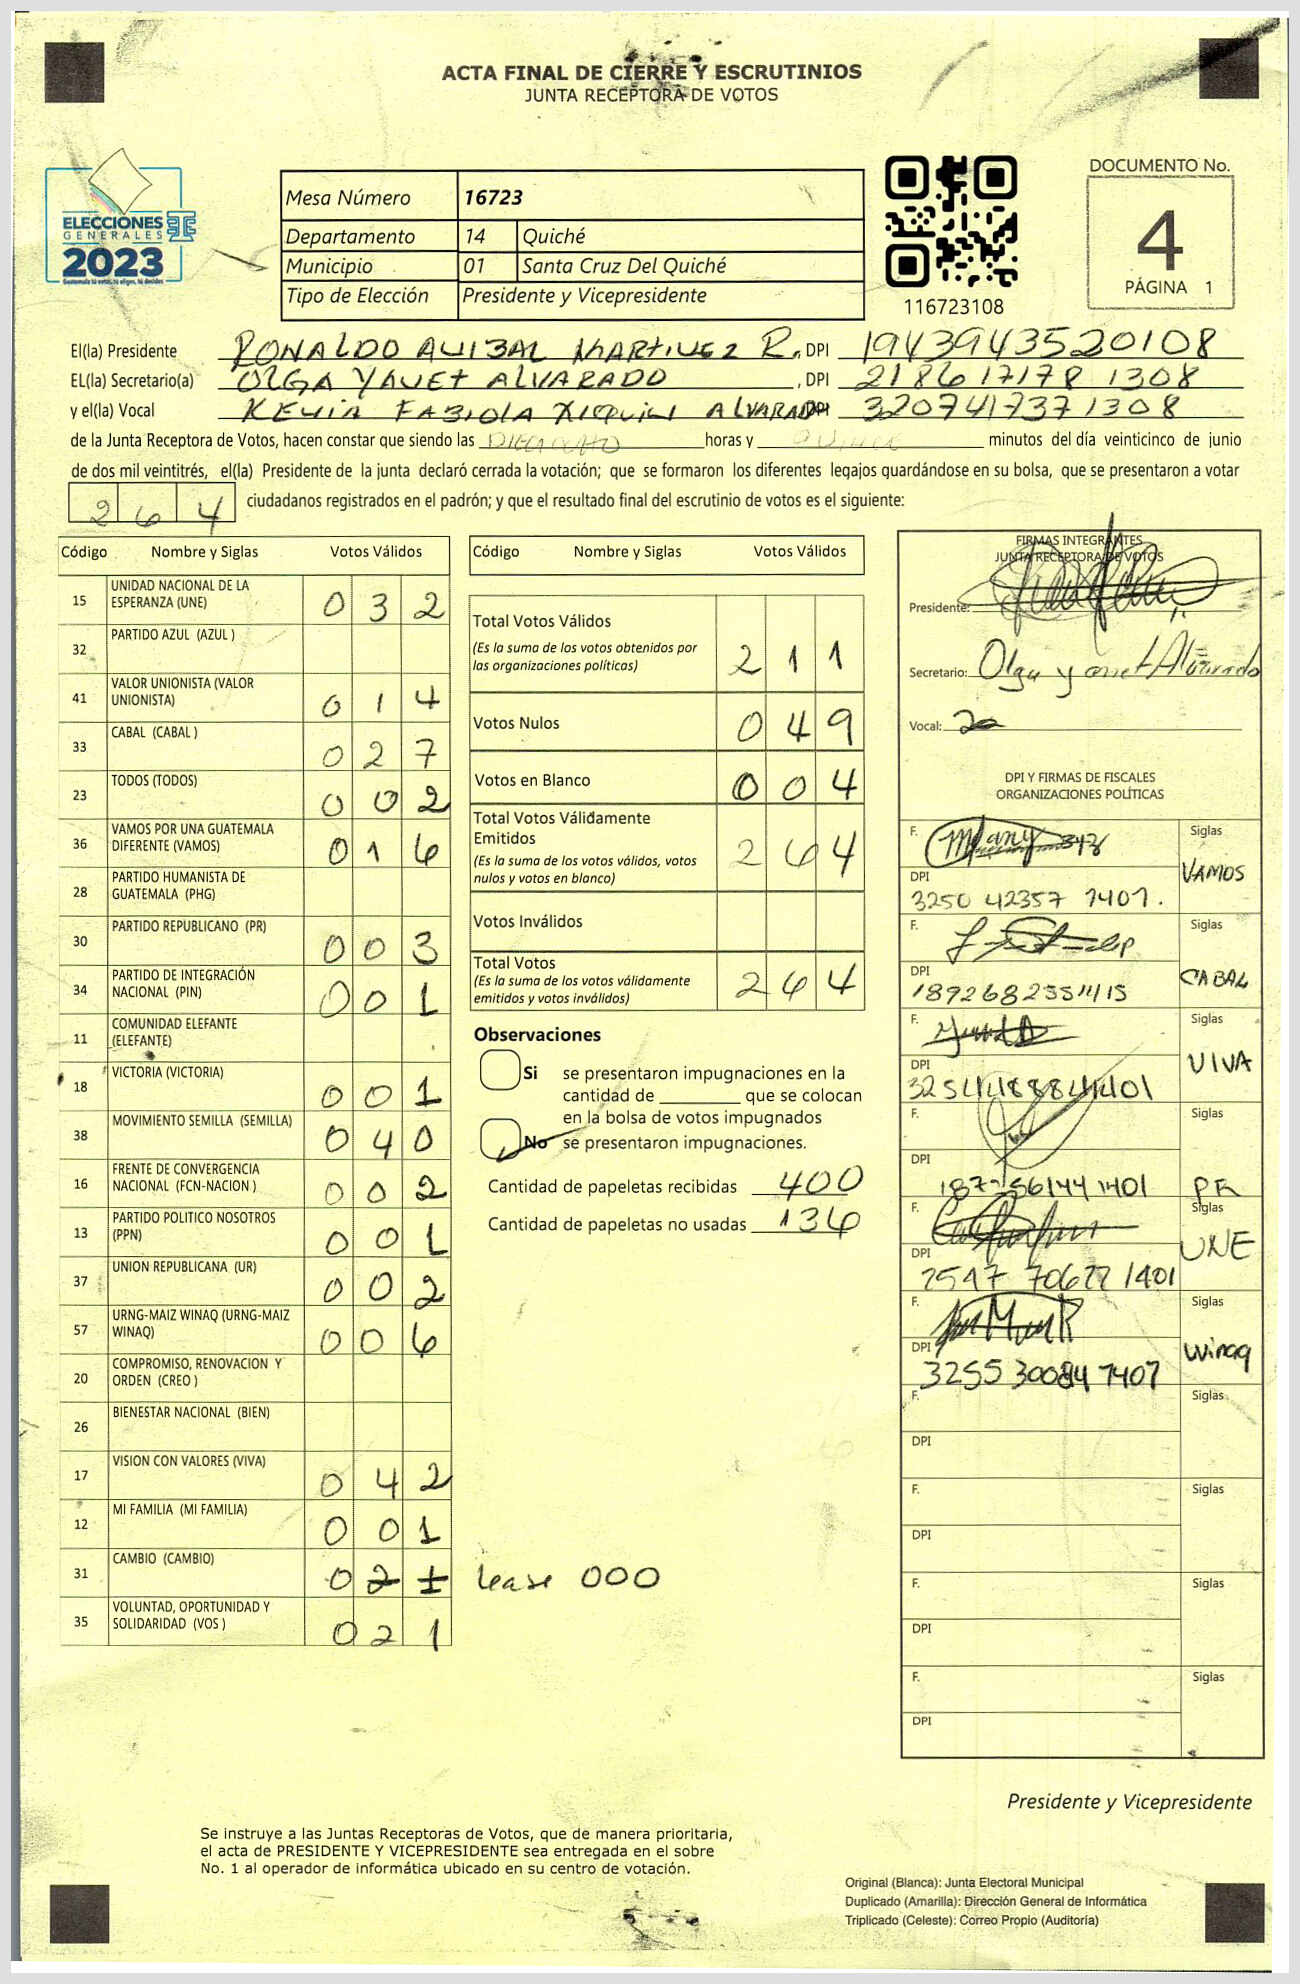 ACTA FINAL DE CIERRE Y ESCRUTINIOS
JUNTA RECEPTORA DE VOTOS
ELECCIONES
GENERALES
2023
Mesa Número 16723
Departamento 14 Quiché
Municipio 01 Santa Cruz Del Quiché
Tipo de Elección Presidente y Vicepresidente
116723108
DOCUMENTO No.
4
PÁGINA 1
El(la) Presidente RONALDO ANIBAL MARTINEZ R. , DPI 1943943520108
EL(la) Secretario(a) OLGA YANET ALVARADO , DPI 2186171781308
y el(la) Vocal KEVIN FABIOLA XIQUIN ALVARADO DPI 3207417371308
de la Junta Receptora de Votos, hacen constar que siendo las DIECIOCHO horas y QUINCE minutos del día veinticinco de junio
de dos mil veintitrés, el(la) Presidente de la junta declaró cerrada la votación; que se formaron los diferentes legajos guardándose en su bolsa, que se presentaron a votar
264 ciudadanos registrados en el padrón; y que el resultado final del escrutinio de votos es el siguiente:
Código Nombre y Siglas Votos Válidos
15 UNIDAD NACIONAL DE LA ESPERANZA (UNE) 032
32 PARTIDO AZUL (AZUL )
41 VALOR UNIONISTA (VALOR UNIONISTA) 014
33 CABAL (CABAL ) 027
23 TODOS (TODOS) 002
36 VAMOS POR UNA GUATEMALA DIFERENTE (VAMOS) 016
28 PARTIDO HUMANISTA DE GUATEMALA (PHG)
30 PARTIDO REPUBLICANO (PR) 003
34 PARTIDO DE INTEGRACIÓN NACIONAL (PIN) 001
11 COMUNIDAD ELEFANTE (ELEFANTE)
18 VICTORIA (VICTORIA) 001
38 MOVIMIENTO SEMILLA (SEMILLA) 040
16 FRENTE DE CONVERGENCIA NACIONAL (FCN-NACION ) 002
13 PARTIDO POLITICO NOSOTROS (PPN) 001
37 UNION REPUBLICANA (UR) 002
57 URNG-MAIZ WINAQ (URNG-MAIZ WINAQ) 006
20 COMPROMISO, RENOVACION Y ORDEN (CREO )
26 BIENESTAR NACIONAL (BIEN)
17 VISION CON VALORES (VIVA) 042
12 MI FAMILIA (MI FAMILIA) 001
31 CAMBIO (CAMBIO) 021 lease 000
35 VOLUNTAD, OPORTUNIDAD Y SOLIDARIDAD (VOS ) 021
Código Nombre y Siglas Votos Válidos
Total Votos Válidos 211
(Es la suma de los votos obtenidos por
las organizaciones políticas)
Votos Nulos 049
Votos en Blanco 004
Total Votos Válidamente
Emitidos 264
(Es la suma de los votos válidos, votos
nulos y votos en blanco)
Votos Inválidos
Total Votos 264
(Es la suma de los votos válidamente
emitidos y votos inválidos)
Observaciones
Si se presentaron impugnaciones en la
cantidad de ________ que se colocan
en la bolsa de votos impugnados
No se presentaron impugnaciones.
Cantidad de papeletas recibidas 400
Cantidad de papeletas no usadas 136
FIRMAS INTEGRANTES
JUNTA RECEPTORA DE VOTOS
Presidente:
Secretario: Olga Yanet Alvarado
Vocal:
DPI Y FIRMAS DE FISCALES
ORGANIZACIONES POLÍTICAS
F. Siglas
DPI 3250 42357 1401. VAMOS
F. Siglas
DPI CABAL
F. Siglas
DPI VIVA
F.
DPI PR
F. Siglas
DPI 2547 70622 1401 UNE
F. Siglas
DPI 3255 30084 1407 Winaq
F. Siglas
DPI
F. Siglas
DPI
F. Siglas
DPI
F. Siglas
DPI
Presidente y Vicepresidente
Se instruye a las Juntas Receptoras de Votos, que de manera prioritaria,
el acta de PRESIDENTE Y VICEPRESIDENTE sea entregada en el sobre
No. 1 al operador de informática ubicado en su centro de votación.
Original (Blanca): Junta Electoral Municipal
Duplicado (Amarilla): Dirección General de Informática
Triplicado (Celeste): Correo Propio (Auditoría)